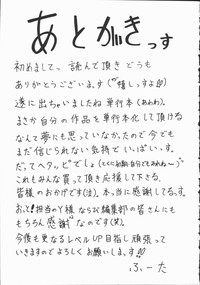 あとがきっす
初めまして。読んで頂きどうも
ありがとうございまっす
遂に出ちゃいましたね単行本(あわわ)。
まさか自分の作品を単行本化して頂ける
なんて夢にも思っていなかったので今でも
まだ信じられない気持でいっぱいっす。
だってヘタッピでしょ
これもみんな買って頂き応援して下さる
皆様のおかげです(泣)。本当に感謝してるっす。
おっと!担当のY様ならび編集部の皆さんにも
もちろん感謝なのです(笑)。
今後も更なるレベルUP目指し頑張って
いきますのでよろしくお願いします!!
ふーた